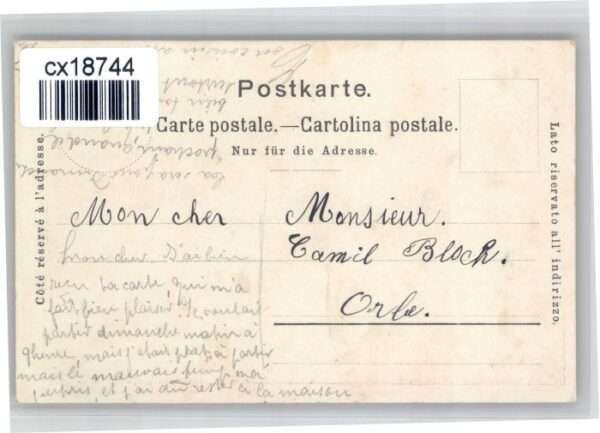 cx18744
Postkarte.
Carte postale.—Cartolina postale.
Nur für die Adresse.
Côté réservé à l'adresse.
Lato riservato all' indirizzo.
Mon cher
Monsieur.
Camil Bloch.
Orbe.
mon cher J'ai bien
reçu ta carte qui m'a
fait bien plaisir. Je voulait
partir dimanche matin à
9 heure mais j'étais prêt à partir
mais le mauvais temp m'a
surpris et j'ai dû rester à la maison
prochain quand il
bien
surtout
Ton cousin